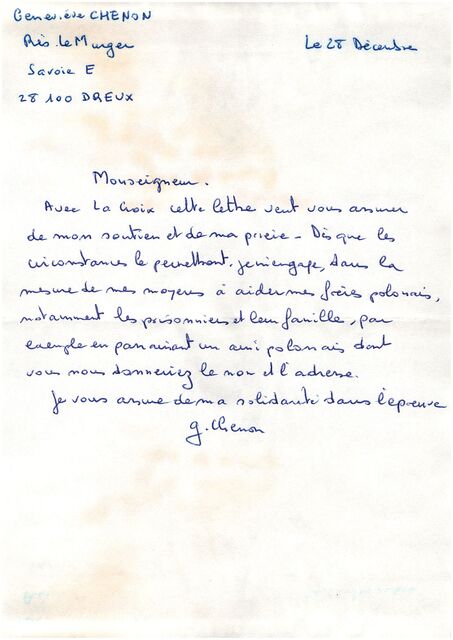 Geneviève CHENON
Rés. le Murger
Le 28 Décembre
Savoie E
28 100 DREUX
Monseigneur.
Avec La Croix cette lettre veut vous assurer
de mon soutien et de ma prière - Dès que les
circonstances le permettront, je m'engage, dans la
mesure de mes moyens à aider mes frères polonais,
notamment les prisonniers et leur famille, par
exemple en parrainant un ami polonais dont
vous nous donneriez le nom et l'adresse.
Je vous assure de ma solidarité dans l'épreuve
G. Chenon